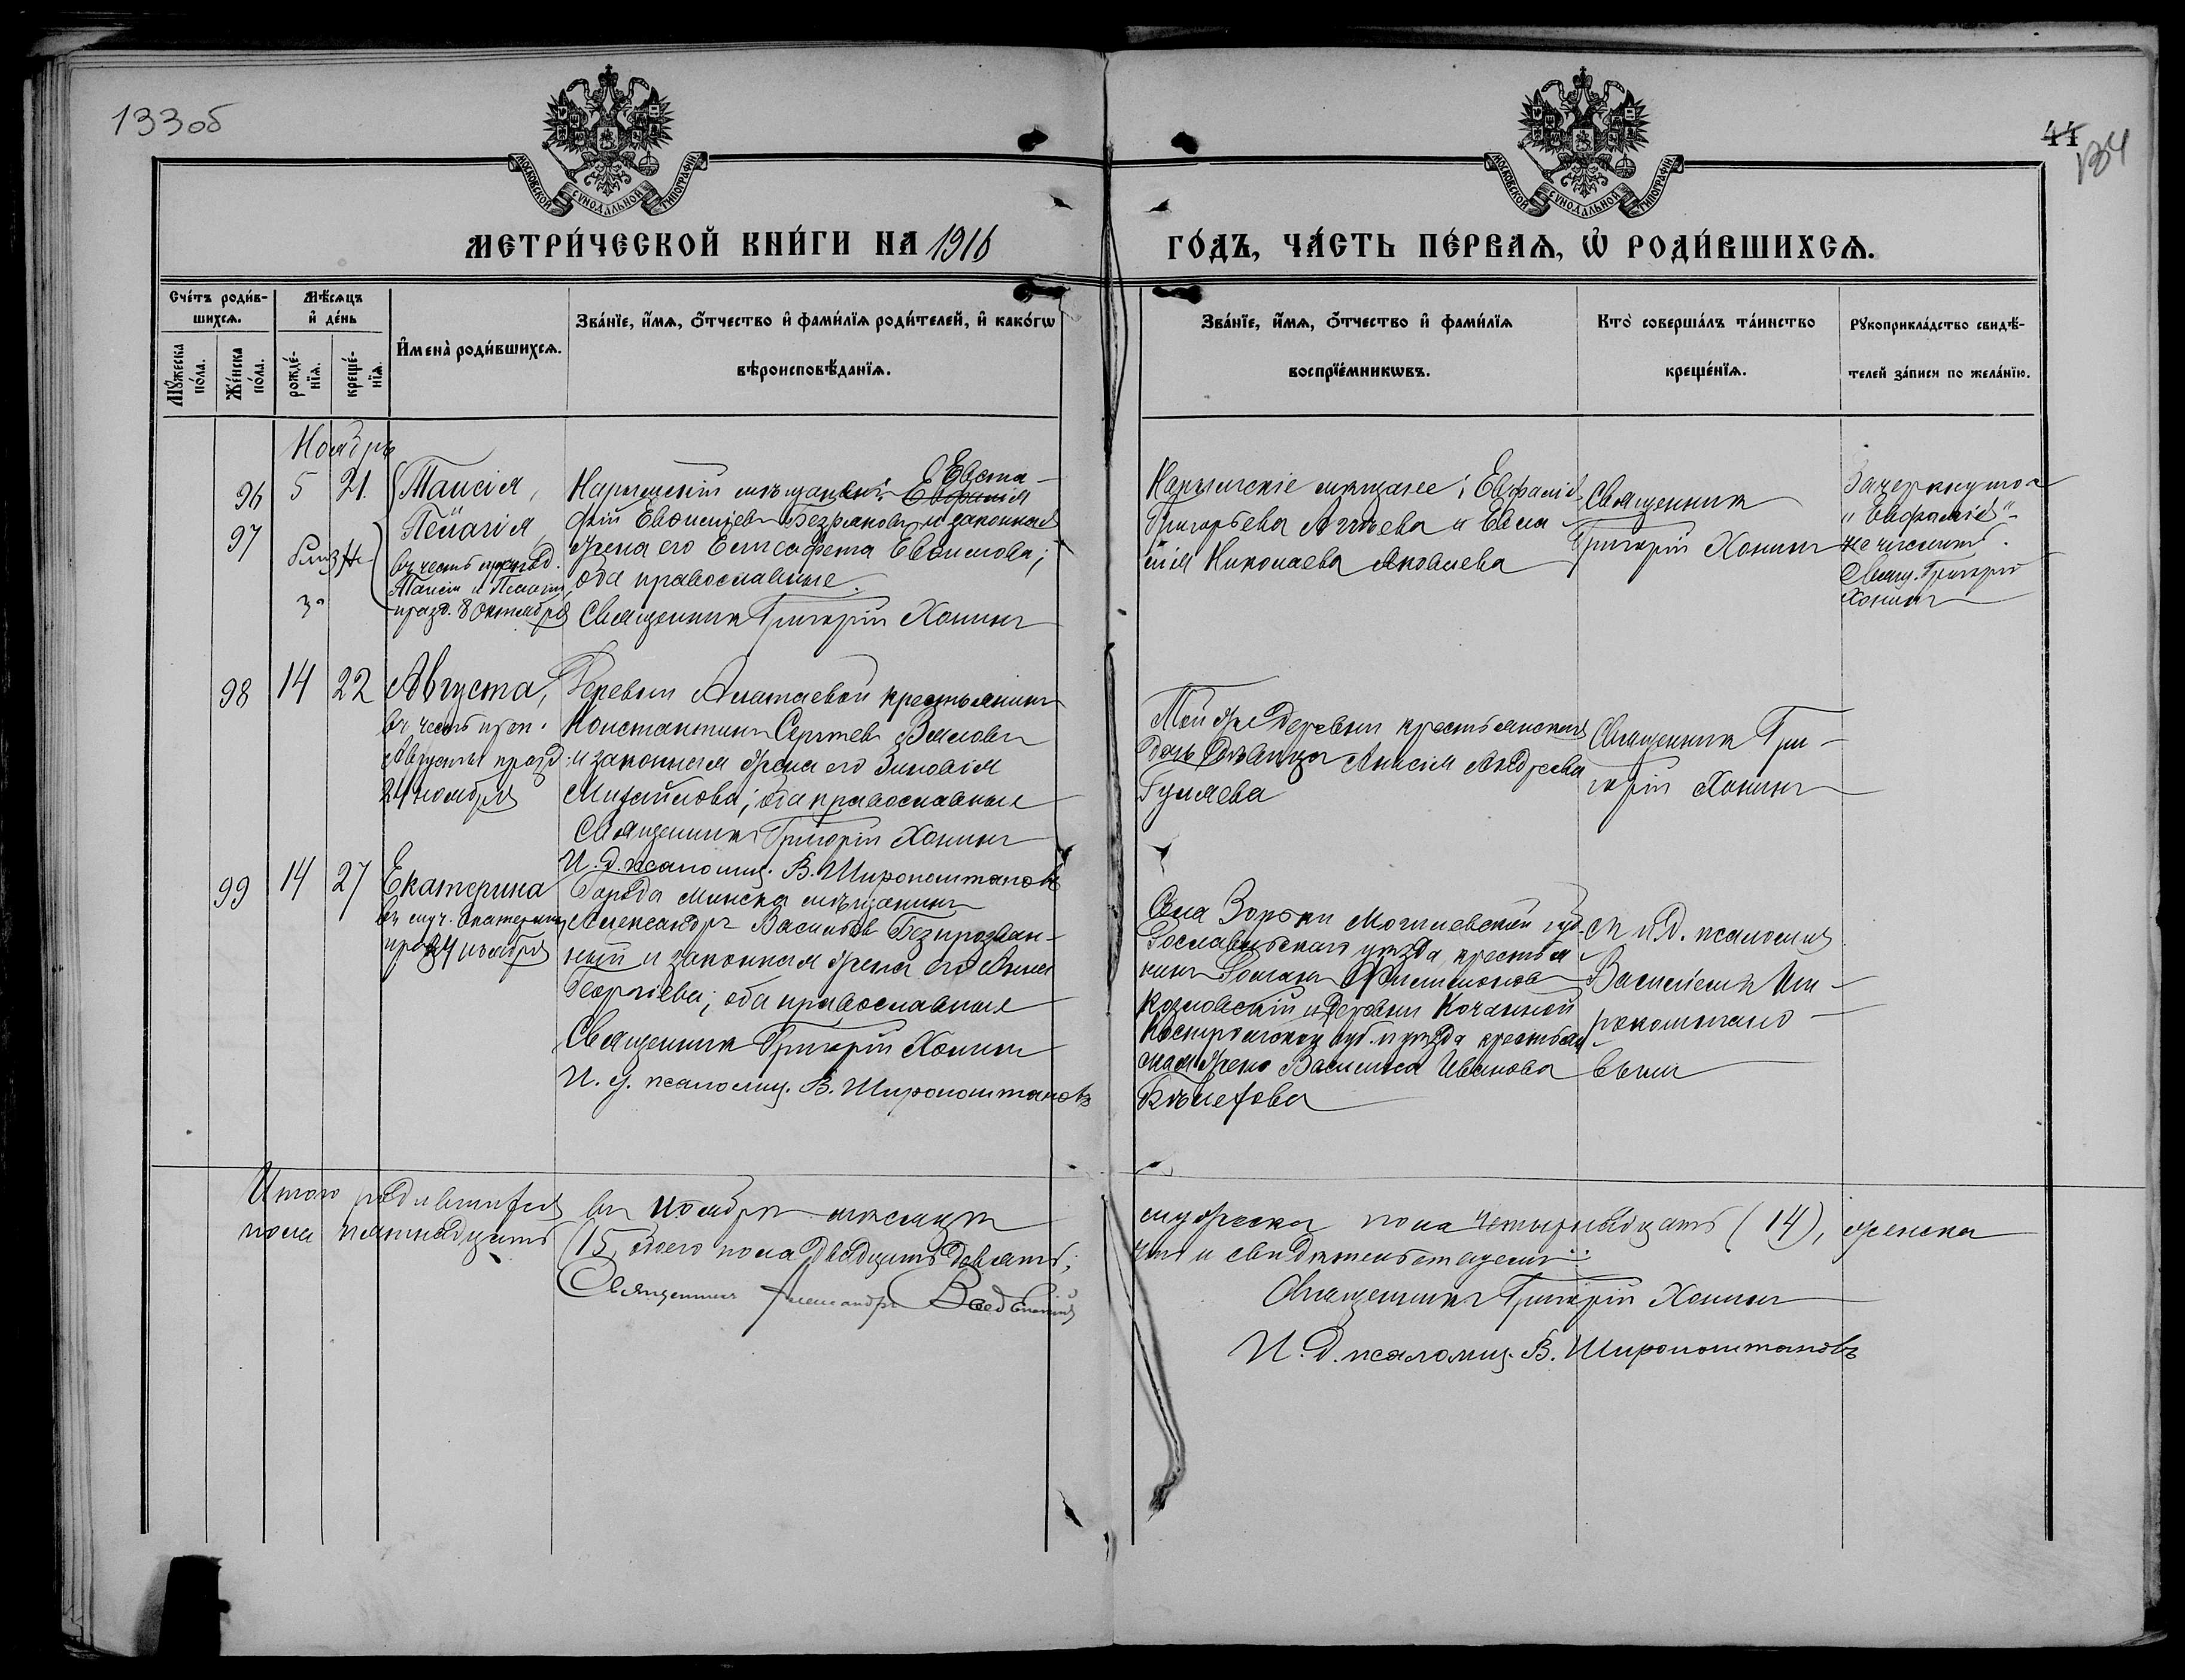 133 об
44
134
МОСКОВСКОЙ СѴНОДАЛЬНОЙ ТИПОГРАФІИ
МОСКОВСКОЙ СѴНОДАЛЬНОЙ ТИПОГРАФІИ
МЕТРИ́ЧЕСКОЙ КНИ́ГИ НА 1916
ГО́ДЪ, ЧА́СТЬ ПЕ́РВАѦ, Ѡ҆ РОДИ́ВШИХСѦ.
Сче́тъ роди́в-
шихсѧ.
Мꙋ́жеска по́ла.
Же́нска по́ла.
Мѣ́сѧцъ
и҆ де́нь
рожде́-
нїѧ.
креще́-
нїѧ.
И҆мена̀ роди́вшихсѧ.
Зва́нїе, и҆́мѧ, ѻ҆́тчество и҆ фами́лїѧ роди́телей, и҆ како́гѡ
вѣроисповѣ́данїѧ.
Зва́нїе, и҆́мѧ, ѻ҆́тчество и҆ фами́лїѧ
воспрїе́мникѡвъ.
Кто̀ соверша́лъ та́инство
креще́нїѧ.
Рꙋкоприкла́дство свидѣ́-
телей за́писи по жела́нїю.
Ноябрь
96 5 21. Таисія,
97 Пелагія,
близне
въ честь препод.
Таисіи и Пелагіи
празд. 8 Октября
Нарымскій мѣщанинъ Евста-
Евфанія
фій Евдокимовъ и законная
жена его Елисафета Евдокимова;
оба православные.
Священникъ Григорій Хонинъ
Нарымскіе мѣщане: Евфанія
Григорьева и Евла-
нія Николаева Яковлева
Священникъ
Григорій Хонинъ
Зачеркнутое
"Евфанія"
не читать.
Свящ. Григорій
Хонинъ
98 14 22 Августа,
въ честь преп.
Августы празд.
24 ноября
Деревни Алатаевой крестьянинъ
Константинъ Сергѣевъ Вяловъ
и законная жена его Зиновія
Михайлова; оба православные
Священникъ Григорій Хонинъ
И. д. псаломщ. В. Широкоштановъ
Той же деревни крестьянская
дочь дѣвица Анисія Андреева
Гуляева
Священникъ Гри-
горій Хонинъ
99 14 27 Екатерина
въ муч. Екатерины
пр. 24 ноября
Города Минска мѣщанинъ
Александръ Васильевъ Безпрозван-
ный и законная жена его Анна
Георгіева; оба православные
Священникъ Григорій Хонинъ
И. д. псаломщ. В. Широкоштановъ
Села Зорьки Могилевской губ.
уѣзда крестья-
нинъ Романъ Филимоновъ
Козловскій и деревни
Костромской губ. и уѣзда крестьян-
ская жена Василиса Иванова
съ и. д. псаломщ.
Василіемъ Ши-
рокоштано-
вымъ
Итого родившихся въ Ноябрѣ мѣсяцѣ
мужеска пола четырнадцать (14), женска
пола пятнадцать (15, обоего пола двадцать девять;
что и свидѣтельствуемъ:
Священникъ Александръ Введенскій
Священникъ Григорій Хонинъ
И. д. псаломщ. В. Широкоштановъ